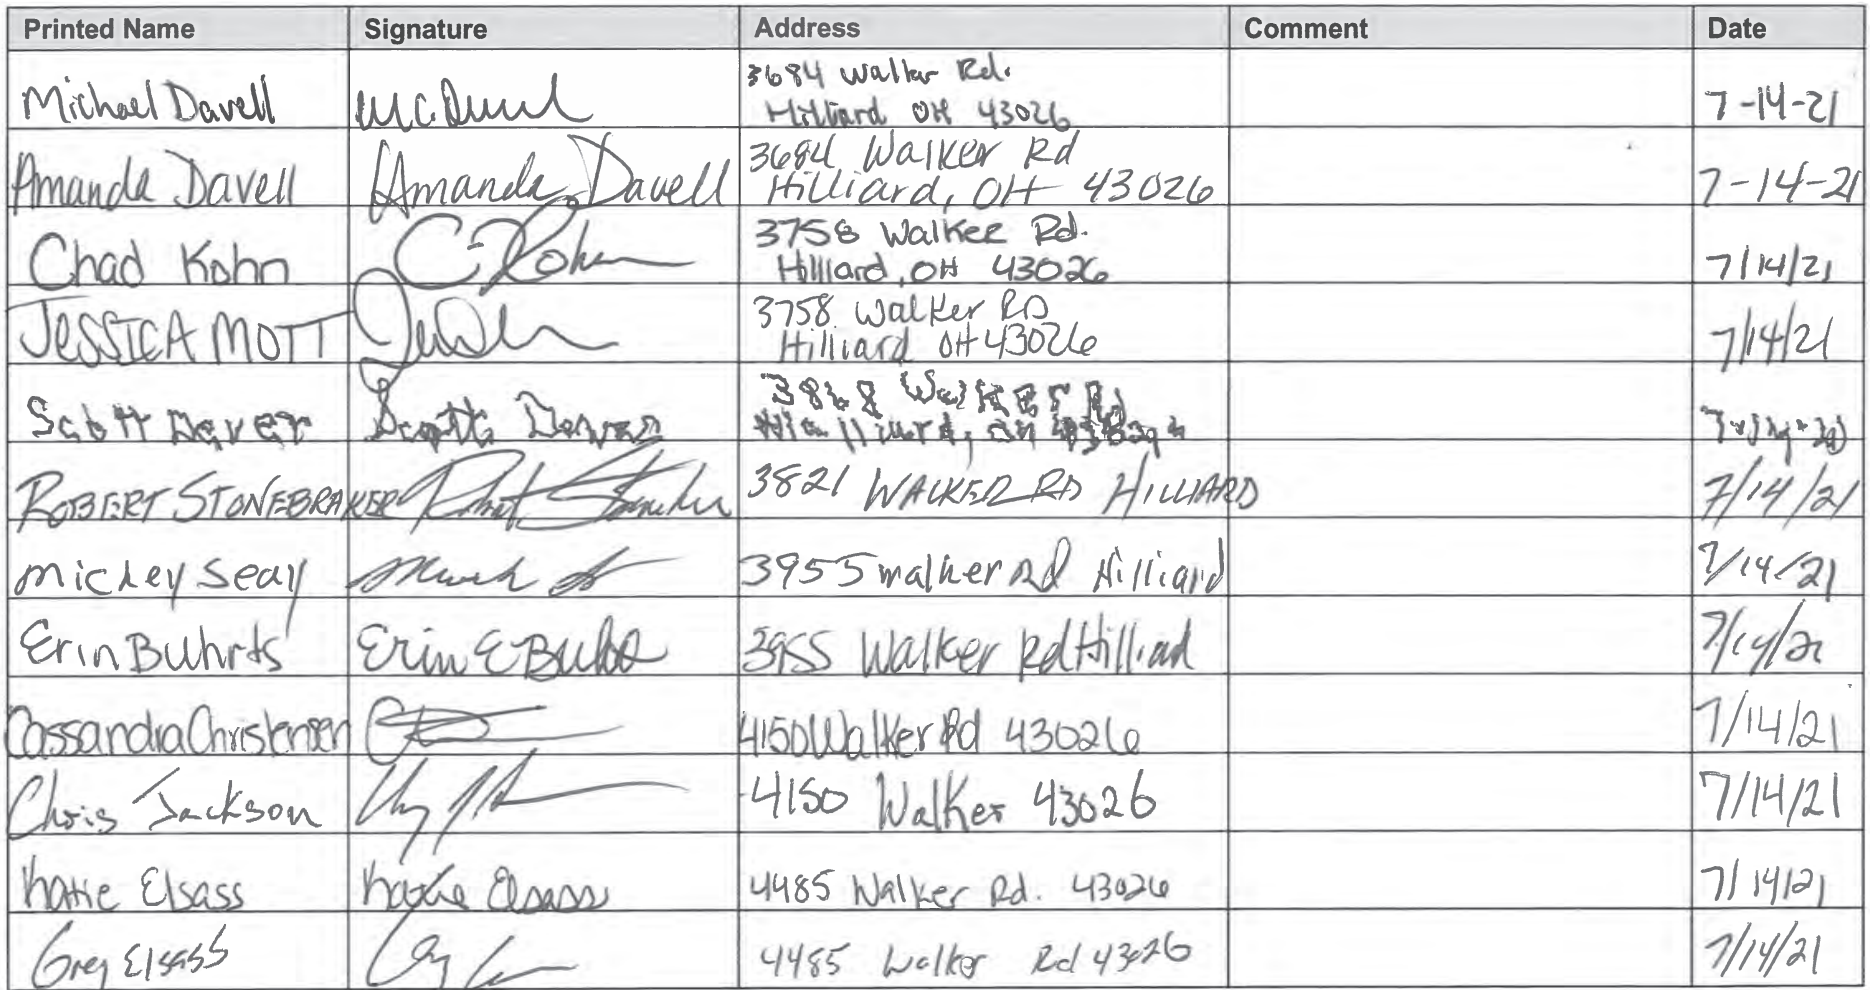 Printed Name Signature Address Comment Date
Michael Davell 3684 Walker Rd. 7-14-21
Hilliard OH 43026
Amanda Davell Amanda Davell 3684 Walker Rd 7-14-21
Hilliard, OH 43026
Chad Kohn C Kohn 3758 Walker Rd. 7/14/21
Hilliard, OH 43026
JESSICA MOTT 3758 Walker RD 7/14/21
Hilliard OH 43026
Scott Scott
ROBERT STONEBRAKER 3821 WALKER RD HILLIARD 7/14/21
mickey seay 3955 walker Rd Hilliard 7/14/21
Erin Buhrts Erin E 3955 Walker Rd Hilliad 7/14/21
Cassandra Christensen 4150 Walker Rd 43026 7/14/21
Chris Jackson 4150 Walker 43026 7/14/21
Katie Elsass Katie Elsass 4485 Walker Rd. 43026 7/14/21
Greg Elsass 4485 Walker Rd 43026 7/14/21